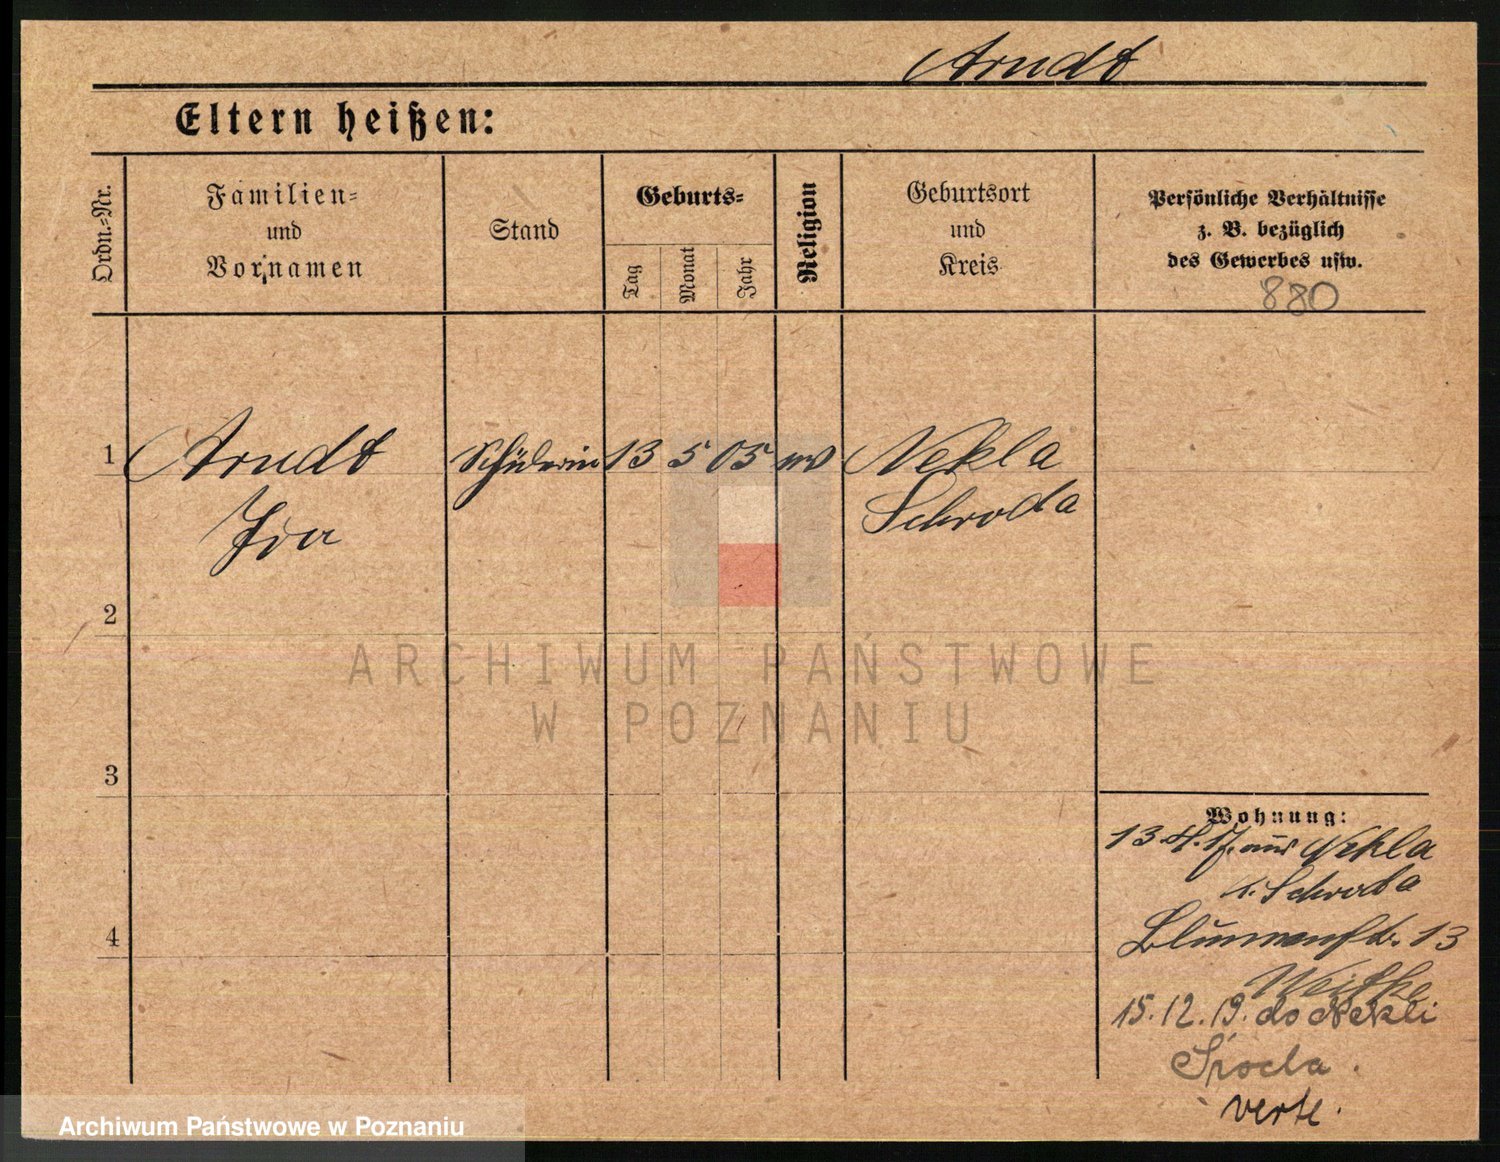 Arndt
Eltern heißen:
Ordn.-Nr.
Familien-
und
Vornamen
Stand
Geburts-
Tag
Monat
Jahr
Religion
Geburtsort
und
Kreis
Persönliche Verhältnisse
z. B. bezüglich
des Gewerbes usw.
880
1 Arndt Schülerin 13 5 05 ev Nekla
Schroda
2
3
4
Wohnung:
13.4.17. aus Nekla
Schroda
Blumenstr. 13
15.12.19. do Nekli
Środa.
verte.
ARCHIWUM PAŃSTWOWE
W POZNANIU
Archiwum Państwowe w Poznaniu